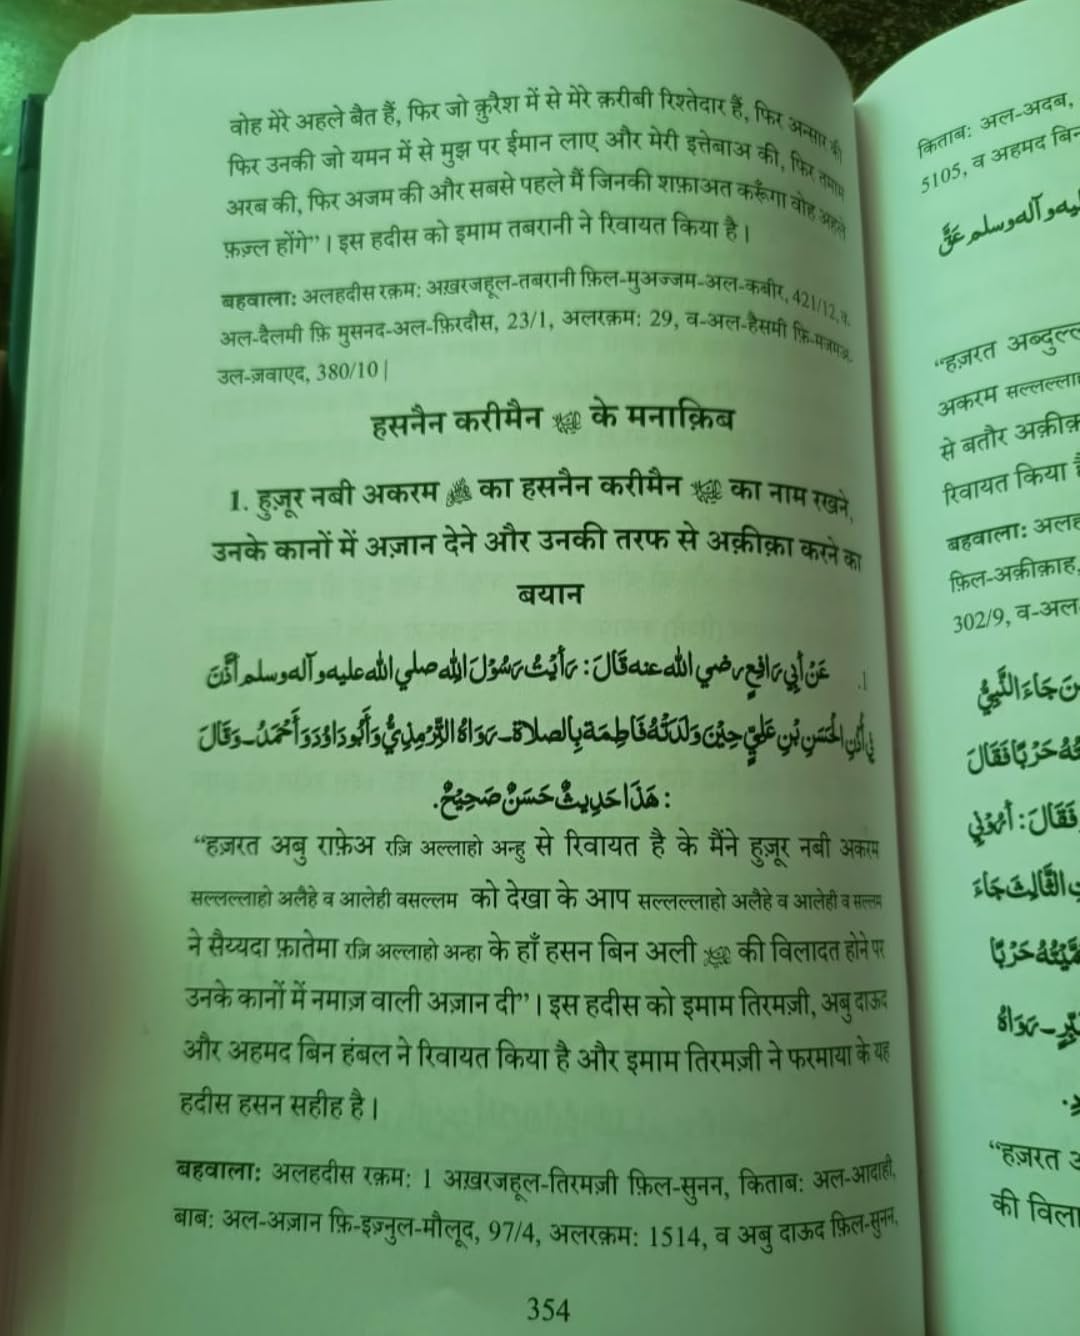 वोह मेरे अहले बैत हैं, फिर जो क़ुरैश में से मेरे क़रीबी रिश्तेदार हैं, फिर अन्सार की
फिर उनकी जो यमन में से मुझ पर ईमान लाए और मेरी इत्तेबाअ की, फिर तमाम
अरब की, फिर अजम की और सबसे पहले मैं जिनकी शफ़ाअत करूँगा वोह अहले
फ़ज़्ल होंगे”। इस हदीस को इमाम तबरानी ने रिवायत किया है।
बहवाला: अलहदीस रक़म: अख़रजहूल-तबरानी फ़िल-मुअज्जम-अल-कबीर, 421/12, व-
अल-दैलमी फ़ि मुसनद-अल-फ़िरदौस, 23/1, अलरक़म: 29, व-अल-हैसमी फ़ि-मजमअ-
उल-ज़वाएद, 380/10|
हसनैन करीमैन के मनाक़िब
1. हुज़ूर नबी अकरम ﷺ का हसनैन करीमैन का नाम रखने,
उनके कानों में अज़ान देने और उनकी तरफ से अक़ीक़ा करने का
बयान
1. عَنْ أَبِي رَافِعٍ رضي الله عنه قَالَ: رَأَيْتُ رَسُوْلَ اللهِ صلي الله عليه وآله وسلم أَذَّنَ
فِي أُذُنِ الْحَسَنِ بْنِ عَلِيٍّ حِيْنَ وَلَدَتْهُ فَاطِمَة بِالصلاة۔ رَوَاهُ التِّرْمِذِيُّ وَأَبُوْدَاوُدَ وَأَحْمَدُ۔ وَقَالَ
: هَذَا حَدِيثٌ حَسَنٌ صَحِيْحٌ.
“हज़रत अबु राफ़ेअ रज़ि अल्लाहो अन्हु से रिवायत है के मैंने हुज़ूर नबी अकरम
सल्लल्लाहो अलैहे व आलेही वसल्लम को देखा के आप सल्लल्लाहो अलैहे व आलेही व सल्लम
ने सैय्यदा फ़ातेमा रज़ि अल्लाहो अन्हा के हाँ हसन बिन अली की विलादत होने पर
उनके कानों में नमाज़ वाली अज़ान दी”। इस हदीस को इमाम तिरमज़ी, अबु दाऊद
और अहमद बिन हंबल ने रिवायत किया है और इमाम तिरमज़ी ने फरमाया के यह
हदीस हसन सहीह है।
बहवाला: अलहदीस रक़म: 1 अख़रजहूल-तिरमज़ी फ़िल-सुनन, किताब: अल-आदाही,
बाब: अल-अज़ान फ़ि-इज़्नुल-मौलूद, 97/4, अलरक़म: 1514, व अबु दाऊद फ़िल-सुनन,
354
किताब: अल-अदब,
5105, व अहमद बिन
وآله وسلم عَقَّ
“हज़रत अब्दुल्ल
अकरम सल्लल्ला
से बतौर अक़ीक़
रिवायत किया है
बहवाला: अलह
फ़िल-अक़ीक़ाह,
302/9, व-अल-
جَاءَ النَّبِيُّ
حَرْبًا فَقَالَ
فَقَالَ: أَرُوْنِي
الثَّالِثُ جَاءَ
حَرْبًا
رَوَاهُ
“हज़रत अ
की विला